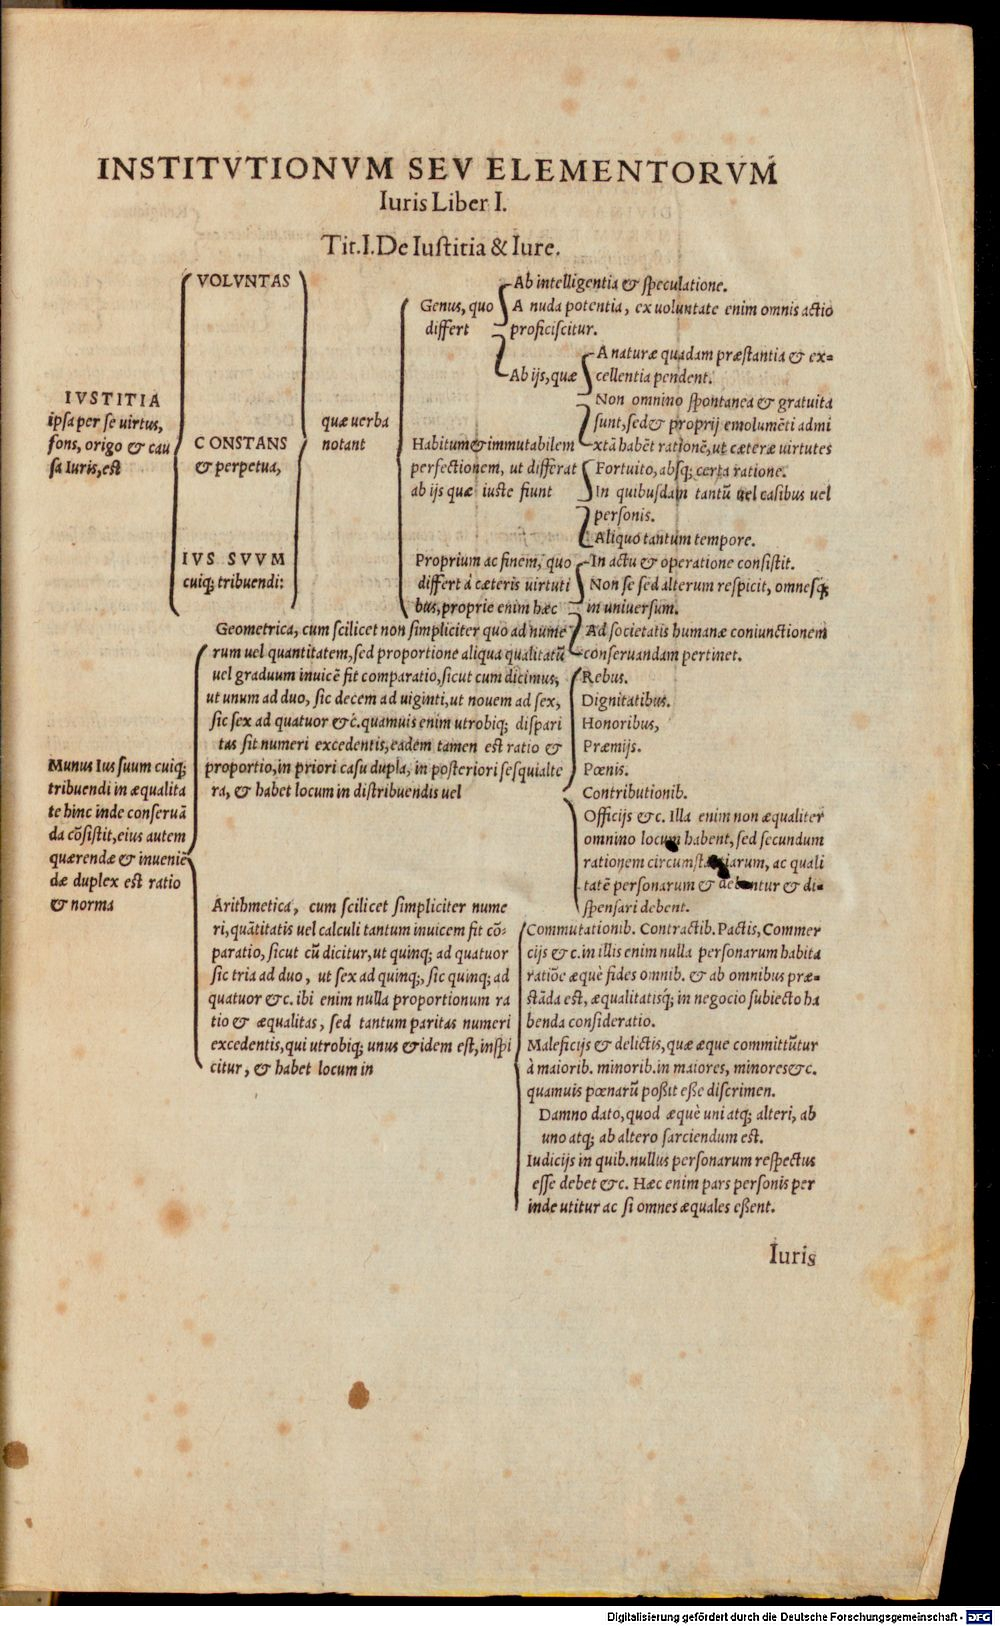 INSTITVTIONVM SEV ELEMENTORVM
Iuris Liber I.
Tit.I. De Iustitia & Iure.
IVSTITIA
ipsa per se uirtus,
fons, origo & cau
sa Iuris, est
VOLVNTAS
CONSTANS
& perpetua,
IVS SVVM
cuiq; tribuendi:
quæ uerba
notant
Genus, quo
differt
Ab intelligentia & speculatione.
A nuda potentia, ex uoluntate enim omnis actio
proficiscitur.
Ab ijs, quæ
A naturæ quadam præstantia & ex=
cellentia pendent.
Non omnino spontanea & gratuita
sunt, sed & proprij emolumēti admi
xtā habēt rationē, ut cæteræ uirtutes
Habitum & immutabilem
perfectionem, ut differat
ab ijs quæ iuste fiunt
Fortuito, absq; certa ratione.
In quibusdam tantū uel casibus uel
personis.
Aliquo tantum tempore.
Proprium ac finem, quo
differt à cæteris uirtuti
bus, proprie enim hæc
In actu & operatione consistit.
Non se sed alterum respicit, omnesq;
in uniuersum.
Ad societatis humanæ coniunctionem
conseruandam pertinet.
Munus Ius suum cuiq;
tribuendi in æqualita
te hinc inde conseruā
da cōsistit, eius autem
quærendæ & inueniē
dæ duplex est ratio
& norma
Geometrica, cum scilicet non simpliciter quo ad nume
rum uel quantitatem, sed proportione aliqua qualitatū
uel graduum inuicē fit comparatio, sicut cum dicimus,
ut unum ad duo, sic decem ad uiginti, ut nouem ad sex,
sic sex ad quatuor &c. quamuis enim utrobiq; dispari
tas sit numeri excedentis, eadem tamen est ratio &
proportio, in priori casu dupla, in posteriori sesquialte
ra, & habet locum in distribuendis uel
Rebus.
Dignitatibus.
Honoribus,
Præmijs.
Pœnis.
Contributionib.
Officijs &c. Illa enim non æqualiter
omnino locum habent, sed secundum
rationem circumstantiarum, ac quali
tatē personarum & debentur & di=
spensari debent.
Arithmetica, cum scilicet simpliciter nume
ri, quātitatis uel calculi tantum inuicem fit cō=
paratio, sicut cū dicitur, ut quinq; ad quatuor
sic tria ad duo, ut sex ad quinq;, sic quinq; ad
quatuor &c. ibi enim nulla proportionum ra
tio & æqualitas, sed tantum paritas numeri
excedentis, qui utrobiq; unus & idem est, inspi
citur, & habet locum in
Commutationib. Contractib. Pactis, Commer
cijs &c. in illis enim nulla personarum habita
ratiōe æquè fides omnib. & ab omnibus præ=
stāda est, æqualitatisq; in negocio subiecto ha
benda consideratio.
Maleficijs & delictis, quæ æque committūtur
à maiorib. minorib. in maiores, minores &c.
quamuis pœnarū poßit eße discrimen.
Damno dato, quod æquè uni atq; alteri, ab
uno atq; ab altero sarciendum est.
Iudicijs in quib. nullus personarum respectus
esse debet &c. Hæc enim pars personis per
inde utitur ac si omnes æquales eßent.
Iuris
Digitalisierung gefördert durch die Deutsche Forschungsgemeinschaft - DFG